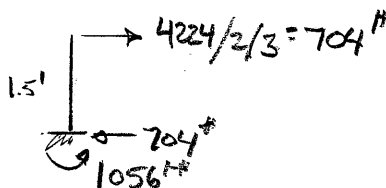 4224/2/3 = 704#
1.5'
704#
1056'#